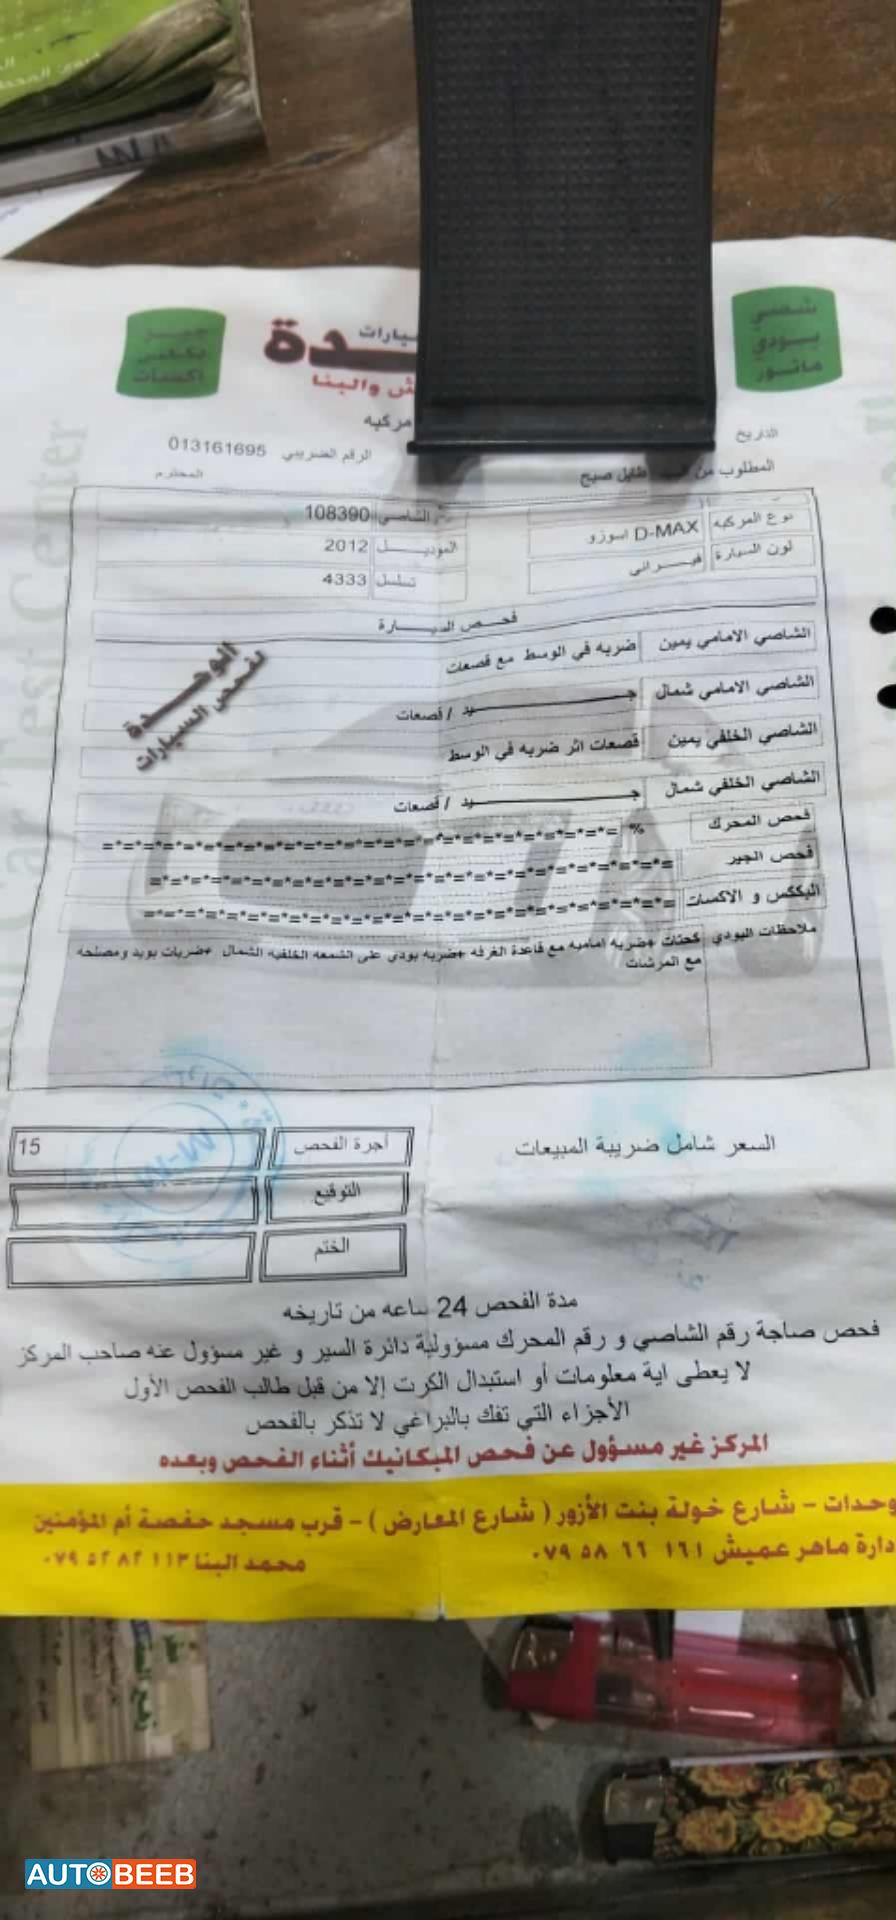 شصي
بودي
ماتور
جير
بككس
اكسات
يارات
ـدة
ش والبنا
مركبه
التاريخ
الرقم الضريبي 013161695
المطلوب من
المحترم
الشاصي 108390
نوع المركبه D-MAX اسوزو
الموديـــل 2012
لون السيارة فيـــرانى
تسلسل 4333
فحـــص السيـــارة
الشاصي الامامي يمين ضربه في الوسط مع قصعات
الشاصي الامامي شمال جـــــــيد / قصعات
الشاصي الخلفي يمين قصعات اثر ضربه في الوسط
الشاصي الخلفي شمال جـــــــيد / قصعات
الوحـــدة
لفحص السيارات
فحص المحرك % =*=*=*=*=*=*=*=*=*=*=*=*=*=*=*=*=*=*=
فحص الجير =*=*=*=*=*=*=*=*=*=*=*=*=*=*=*=*=*=*=
البككس و الاكسات =*=*=*=*=*=*=*=*=*=*=*=*=*=*=*=*=*=*=
ملاحظات البودي كحتات +ضربه اماميه مع قاعدة الغرفه +ضربه بودي على الشمعه الخلفيه الشمال +ضربات بويد ومصلحه
مع المرشات
السعر شامل ضريبة المبيعات
أجرة الفحص 15
التوقيع
الختم
مدة الفحص 24 ساعه من تاريخه
فحص صاجة رقم الشاصي و رقم المحرك مسؤولية دائرة السير و غير مسؤول عنه صاحب المركز
لا يعطى اية معلومات أو استبدال الكرت إلا من قبل طالب الفحص الأول
الأجزاء التي تفك بالبراغي لا تذكر بالفحص
المركز غير مسؤول عن فحص الميكانيك أثناء الفحص وبعده
وحدات - شارع خولة بنت الأزور ( شارع المعارض ) - قرب مسجد حفصة أم المؤمنين
دارة ماهر عميش ٠٧٩ ٥٨ ٦٦ ١٦١ محمد البنا ٠٧٩ ٥٢ ٨٢ ١١٣
AUTOBEEB